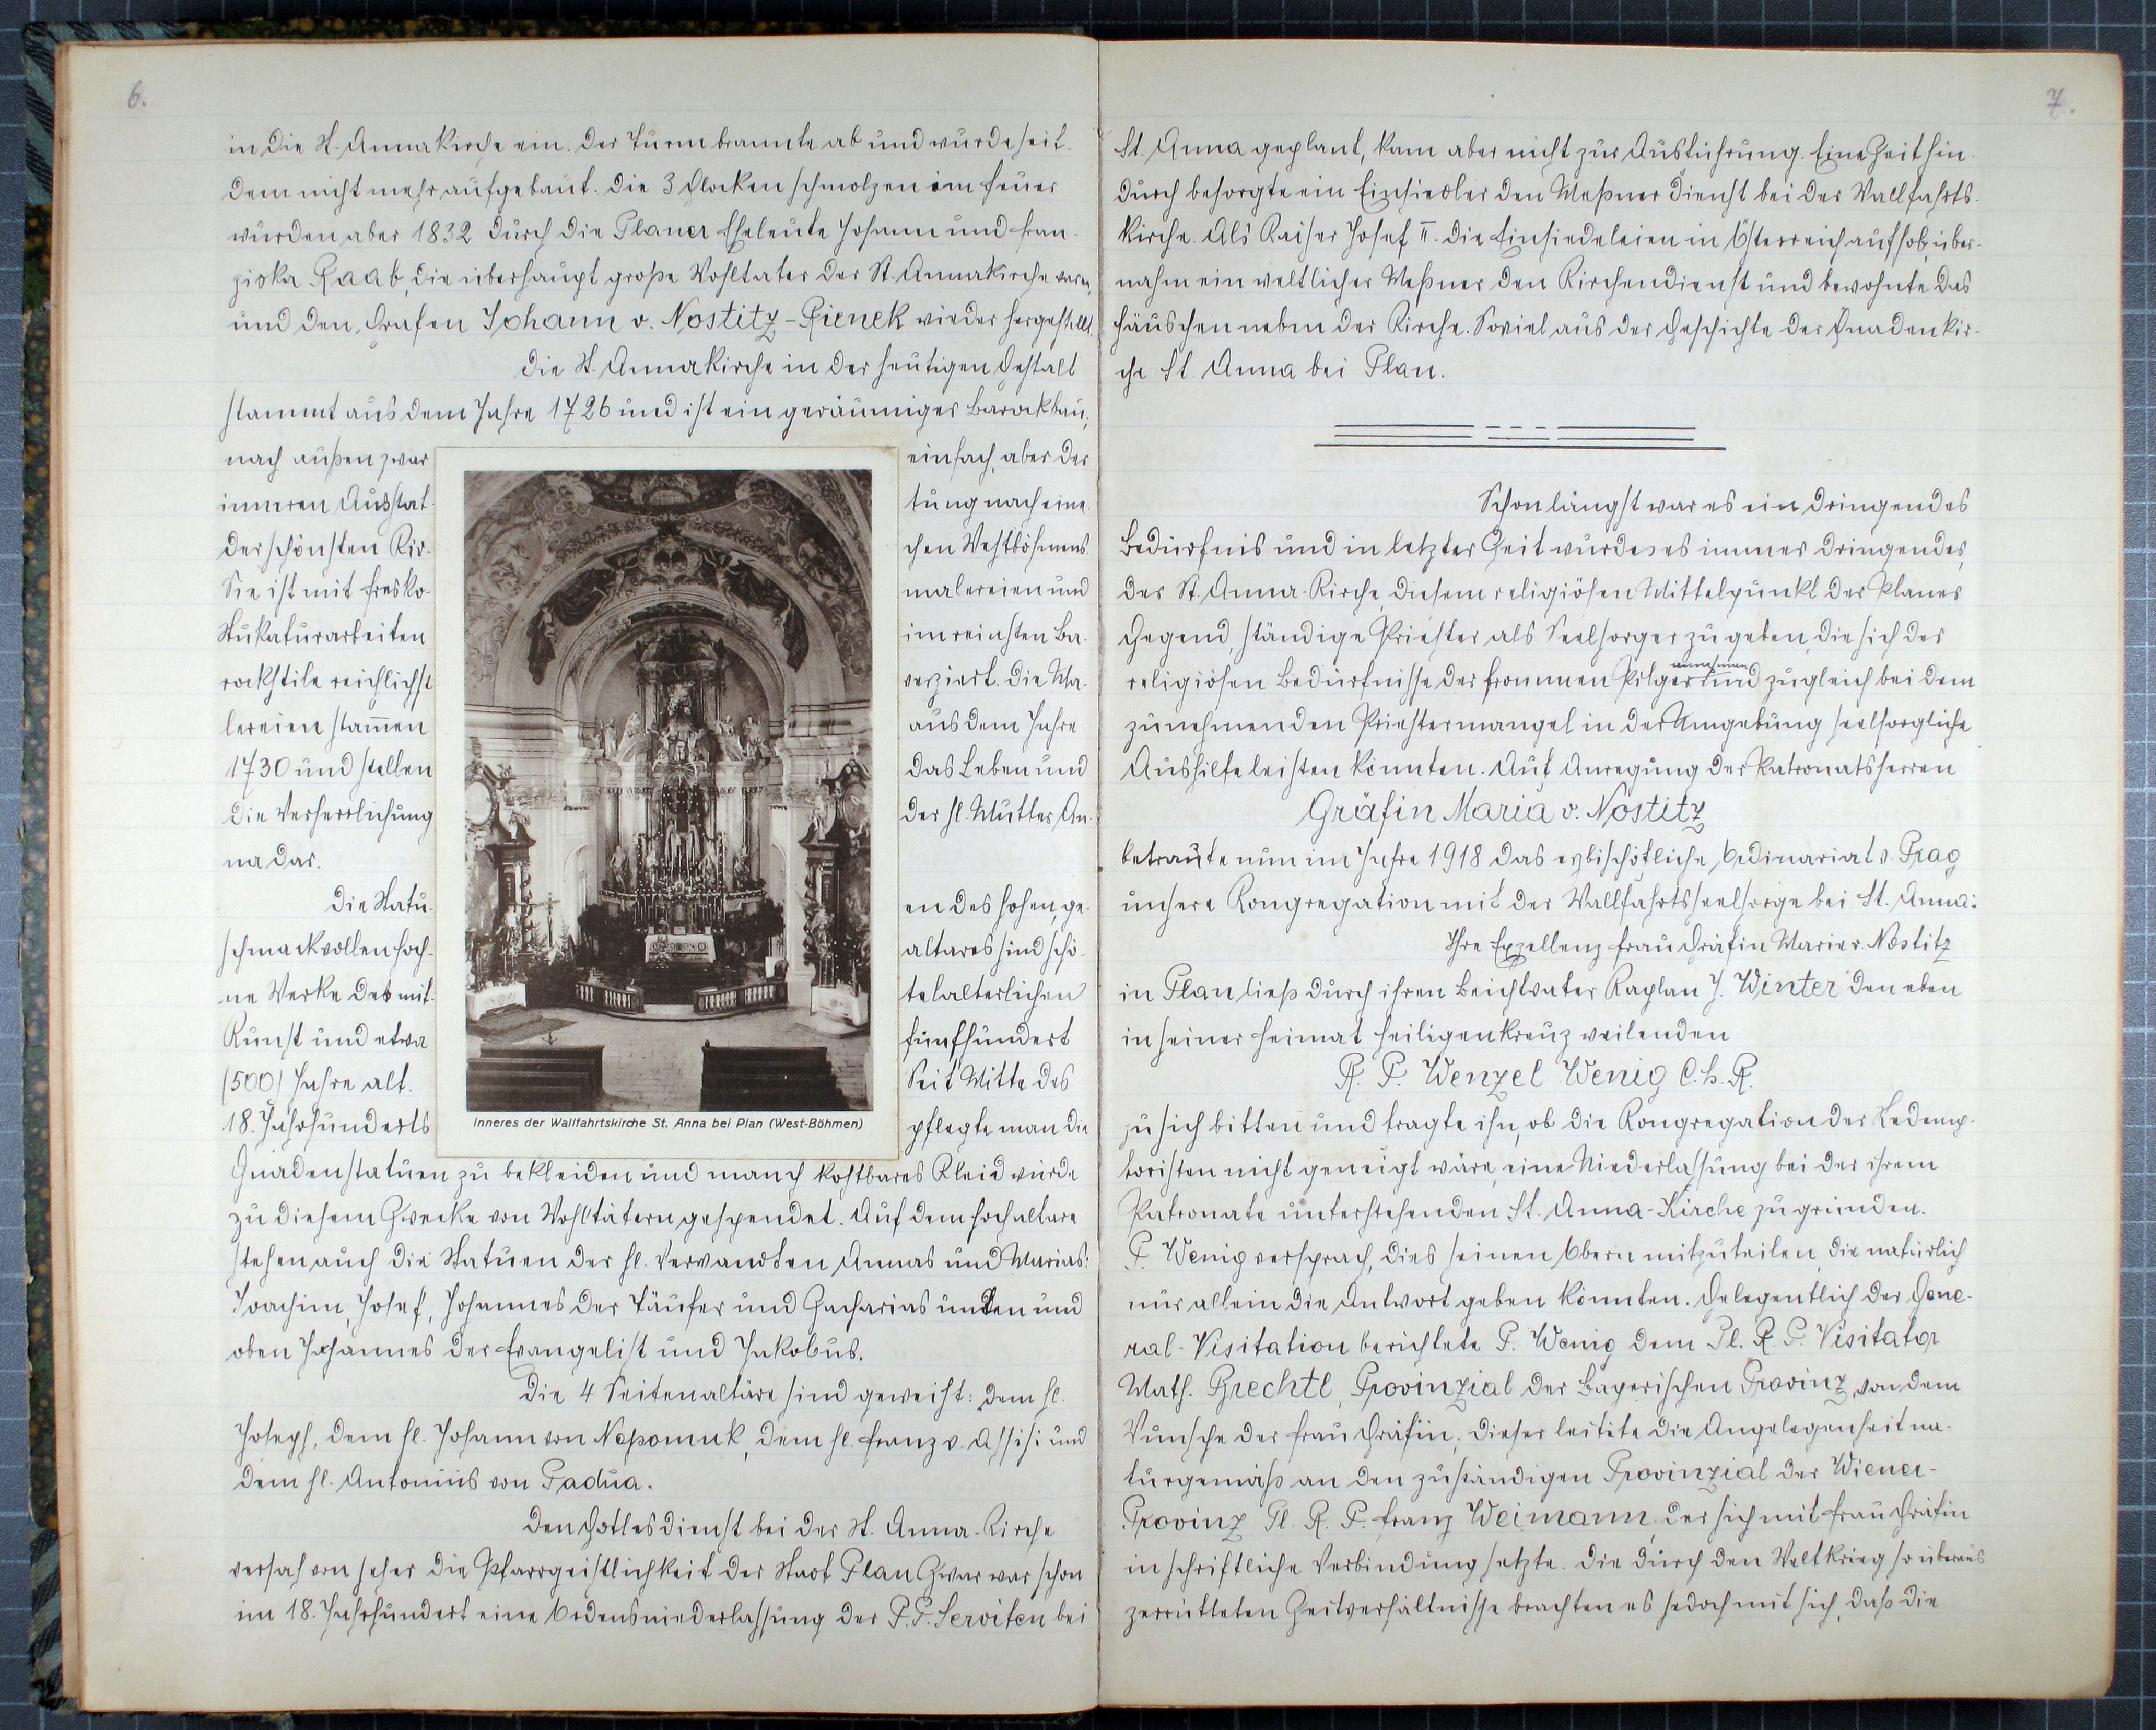 6.
in die St. Annakirche ein. Der Turm brannte ab und wurde seit-
dem nicht mehr aufgebaut. Die 3 Glocken schmolzen im Feuer
wurden aber 1832 durch die Planer Eheleute Johann und Fran-
ziska Raab, die überhaupt große Wohltäter der St. Annakirche waren,
und den Grafen Johann v. Nostitz-Rienek wieder hergestellt.
Die St. Annakirche in der heutigen Gestalt
stammt aus dem Jahre 1726 und ist ein geräumiger Barockbau,
nach außen zwar einfach, aber der
inneren Ausstat- tung nach eine
der schönsten Kir- chen Westböhmens.
Sie ist mit Fresko- malereien und
Stukaturarbeiten im reinsten Ba-
rockstile reichlichst verziert. Die Ma-
lereien stam̄en aus dem Jahre
1730 und stellen das Leben und
die Verherrlichung der hl. Mutter An-
na dar.
Die Statu- en des hohen, ge-
schmackvollen Hoch- altares sind schö-
ne Werke der mit- telalterlichen
Kunst und etwa fünfhundert
(500) Jahre alt. Seit Mitte des
18. Jahrhunderts pflegte man die
Inneres der Wallfahrtskirche St. Anna bei Plan (West-Böhmen)
Gnadenstatuen zu bekleiden und manch kostbares Kleid wurde
zu diesem Zwecke von Wohltätern gespendet. Auf dem Hochaltare
stehen auch die Statuen der hl. Verwandten Annas und Marias:
Joachim, Josef, Johannes der Täufer und Zacharias unten und
oben Johannes der Evangelist und Jakobus.
Die 4 Seitenaltäre sind geweiht: dem hl.
Joseph, dem hl. Johann von Nepomuk, dem hl. Franz v. Assisi und
dem hl. Antonius von Padua.
Den Gottesdienst bei der St. Anna-Kirche
versah von jeher die Pfarrgeistlichkeit der Stadt Plan. Zwar war schon
im 18. Jahrhundert eine Ordensniederlassung der P.P. Serviten bei
7.
St. Anna geplant, kam aber nicht zur Ausführung. Eine Zeit hin-
durch besorgte ein Einsiedler den Meßner Dienst bei der Wallfahrts-
kirche. Als Kaiser Josef II. die Einsiedeleien in Österreich aufhob, über-
nahm ein weltlicher Meßner den Kirchendienst und bewohnte das
Häuschen neben der Kirche. Soviel aus der Geschichte der Gnadenkir-
che St. Anna bei Plan.
Schon längst war es ein dringendes
Bedürfnis und in letzter Zeit wurde es immer dringender,
der St. Anna-Kirche, diesem religiösen Mittelpunkt der Planer
Gegend, ständige Priester als Seelsorger zu geben, die sich der
annehmen
religiösen Bedürfnisse der frommen Pilger und zugleich bei dem
zunehmenden Priestermangel in der Umgebung seelsorgliche
Aushilfe leisten könnten. Auf Anregung der Patronatsherren
Gräfin Maria v. Nostitz
betraute nun im Jahre 1918 das erzbischöfliche Ordinariat v. Prag
unsere Kongregation mit der Wallfahrtsseelsorge bei St. Anna:
Ihre Exzellenz Frau Gräfin Marie v. Nostitz
in Plan ließ durch ihren Beichtvater Kaplan J. Winter den eben
in seiner Heimat Heiligenkreuz weilenden
R. P. Wenzel Wenig C.s.R.
zu sich bitten und fragte ihn, ob die Kongregation der Redemp-
toristen nicht geneigt wäre, eine Niederlassung bei der ihrem
Patronate unterstehenden St. Anna-Kirche zu gründen.
P. Wenig versprach, dies seinen Obern mitzuteilen, die natürlich
nur allein die Antwort geben könnten. Gelegentlich der Gene-
ral-Visitation berichtete P. Wenig dem Pl. R. P. Visitator
Math. Brechtl, Provinzial der Bayerischen Provinz, von dem
Wunsche der Frau Gräfin. Dieser leitete die Angelegenheit na-
turgemäß an den zuständigen Provinzial der Wiener-
Provinz Pl. R. P. Franz Weimann, der sich mit Frau Gräfin
in schriftliche Verbindung setzte. Die durch den Weltkrieg so überaus
zerrütteten Zeitverhältnisse brachten es jedoch mit sich, daß die